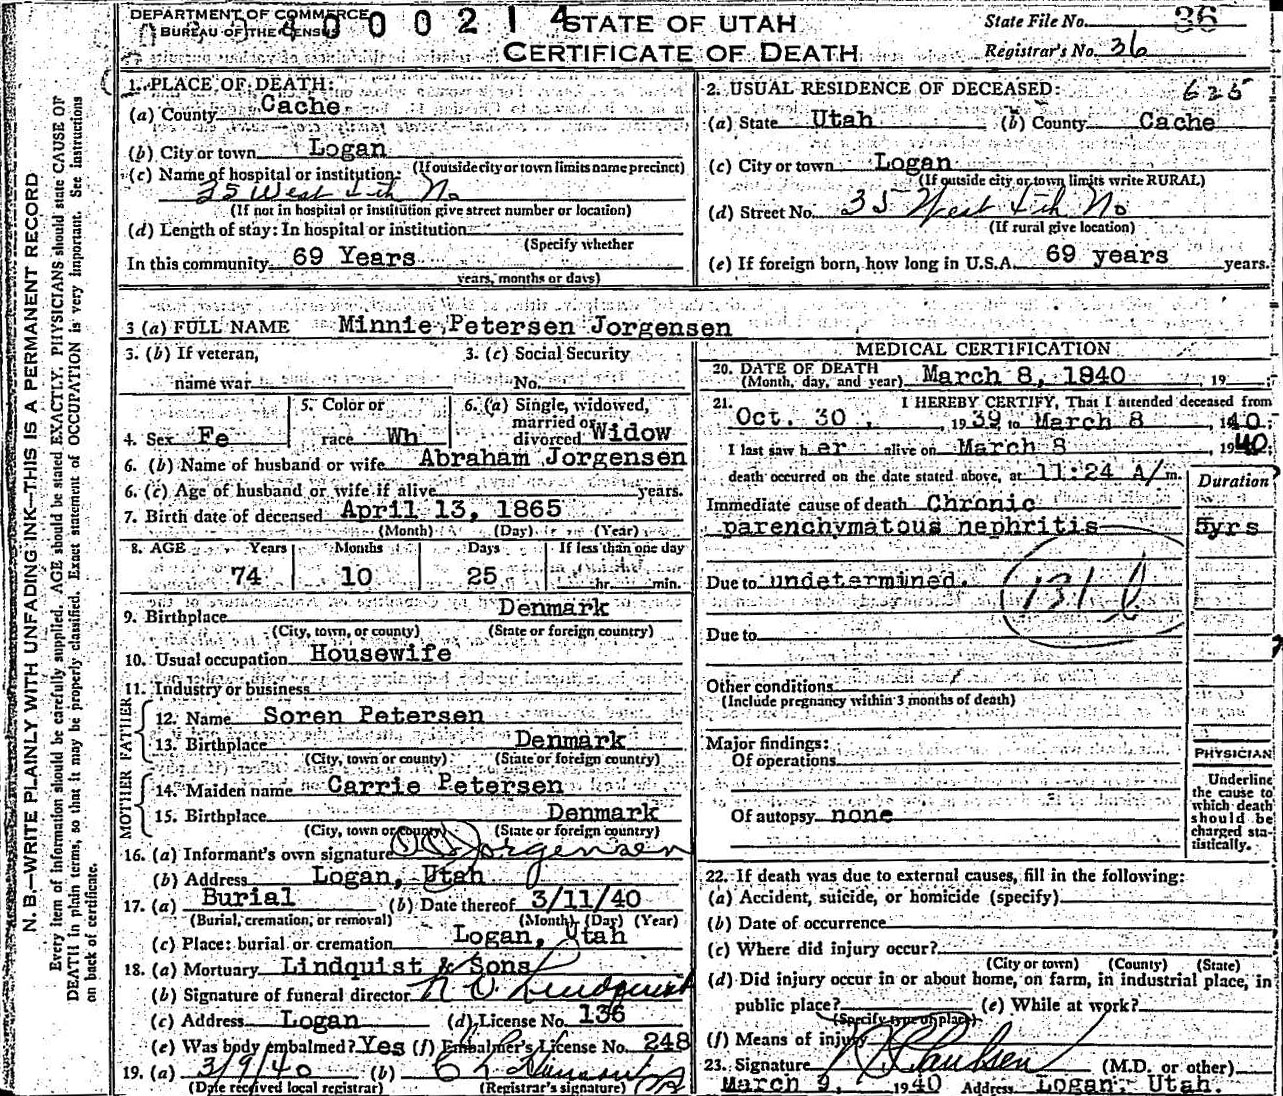 DEPARTMENT OF COMMERCE
BUREAU OF THE CENSUS
0 0 0 2 1 4
STATE OF UTAH
CERTIFICATE OF DEATH
State File No. 36
Registrar's No. 36
N. B.—WRITE PLAINLY WITH UNFADING INK—THIS IS A PERMANENT RECORD
Every item of information should be carefully supplied. AGE should be stated EXACTLY. PHYSICIANS should state CAUSE OF
DEATH in plain terms, so that it may be properly classified. Exact statement of OCCUPATION is very important. See instructions
on back of certificate.
1. PLACE OF DEATH:
(a) County Cache
(b) City or town Logan
(If outside city or town limits name precinct)
(c) Name of hospital or institution:
35 West 4th No
(If not in hospital or institution give street number or location)
(d) Length of stay: In hospital or institution
(Specify whether
In this community 69 Years
years, months or days)
2. USUAL RESIDENCE OF DECEASED: 625
(a) State Utah (b) County Cache
(c) City or town Logan
(If outside city or town limits write RURAL)
(d) Street No. 35 West 4th No
(If rural give location)
(e) If foreign born, how long in U.S.A. 69 years years.
3 (a) FULL NAME Minnie Petersen Jorgensen
3. (b) If veteran,
name war
3. (c) Social Security
No.
4. Sex Fe
5. Color or
race Wh
6. (a) Single, widowed,
married or
divorced Widow
6. (b) Name of husband or wife Abraham Jorgensen
6. (c) Age of husband or wife if alive years.
7. Birth date of deceased April 13, 1865
(Month) (Day) (Year)
8. AGE Years Months Days If less than one day
74 10 25 hr. min.
9. Birthplace Denmark
(City, town, or county) (State or foreign country)
10. Usual occupation Housewife
11. Industry or business
FATHER
12. Name Soren Petersen
13. Birthplace Denmark
(City, town or county) (State or foreign country)
MOTHER
14. Maiden name Carrie Petersen
15. Birthplace Denmark
(City, town or county) (State or foreign country)
16. (a) Informant's own signature Jorgensen
(b) Address Logan, Utah
17. (a) Burial (b) Date thereof 3/11/40
(Burial, cremation, or removal) (Month) (Day) (Year)
(c) Place: burial or cremation Logan, Utah
18. (a) Mortuary Lindquist & Sons
(b) Signature of funeral director N O Lindquist
(c) Address Logan (d) License No. 136
(e) Was body embalmed? Yes (f) Embalmer's License No. 248
19. (a) 3/9/40 (b)
(Date received local registrar) (Registrar's signature)
MEDICAL CERTIFICATION
20. DATE OF DEATH
(Month, day, and year) March 8, 1940 , 19
21. I HEREBY CERTIFY, That I attended deceased from
Oct. 30 , 1939 to March 8 , 1940;
I last saw her alive on March 8 , 1940;
death occurred on the date stated above, at 11:24 A/m.
Duration
Immediate cause of death Chronic
parenchymatous nephritis 5yrs
Due to undetermined.
131 b
Due to
Other conditions
(Include pregnancy within 3 months of death)
Major findings:
Of operations
Of autopsy none
PHYSICIAN
Underline
the cause to
which death
should be
charged sta-
tistically.
22. If death was due to external causes, fill in the following:
(a) Accident, suicide, or homicide (specify)
(b) Date of occurrence
(c) Where did injury occur?
(City or town) (County) (State)
(d) Did injury occur in or about home, on farm, in industrial place, in
public place? (e) While at work?
(Specify type of place)
(f) Means of injury
23. Signature (M.D. or other)
March 9, 1940 Address Logan, Utah.